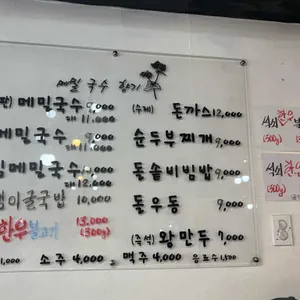 메밀 국수 향기
(판) 메밀국수 9,000
대 11,000
메밀국수 9,000
대 11,000
메밀국수 9,000
대 12,000
굴국밥 10,000
한우불고기 13,000
(300g)
1,000 소주 4,000
(수제) 돈까스 12,000
순두부찌개 9,000
돌솥비빔밥 9,000
돌우동 9,000
(즉석) 왕만두 7,000
맥주 4,000 음료수 1,500
(300g)